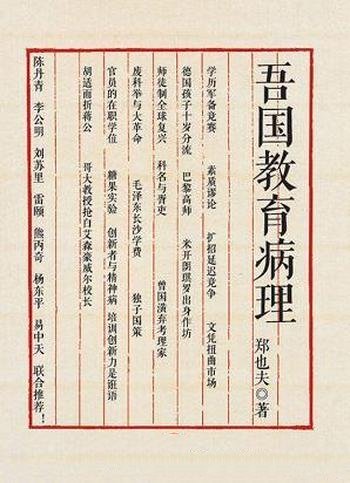 吾国教育病理
郑也夫◎著
学历军备竞赛 素质谬论 扩招延迟竞争 文凭扭曲市场
德国孩子十岁分流 巴黎高师 米开朗琪罗出身作坊
师徒制全球复兴 科名与胥吏 曾国潢弃考理家
废科举与大革命 毛泽东长沙学费 独子国策
官员的在职学位 糖果实验 创新者与精神病 培训创新力是诳语
胡适面折蒋公 哥大教授抢白艾森豪威尔校长
陈丹青 李公明 刘苏里 雷颐 熊丙奇 杨东平 易中天 联合推荐！